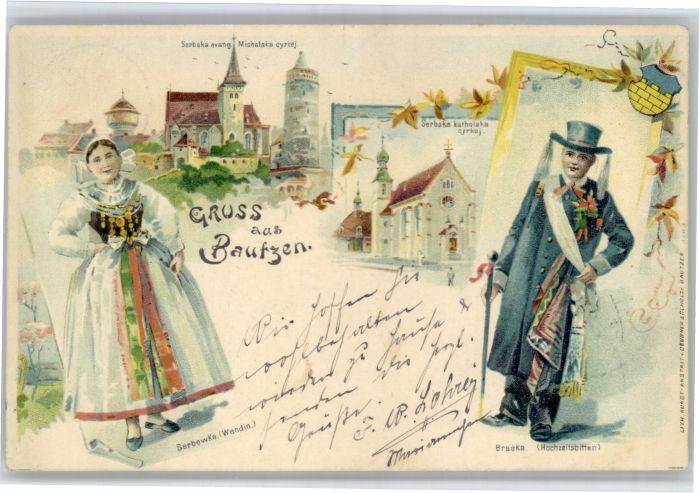 Serbska evang. Michałska cyrkej
Serbska katholska
cyrkej.
Gruss
aus
Bautzen.
Wir hoffen Sie
wohlbehalten
wieder zu Hause &
senden die herzl.
Grüße.
Serbowka. (Wendin.)
Braška. (Hochzeitsbitter)
LITH. KUNST-ANSTALT v. GEBRÜDER SCHOLZ BAUTZEN